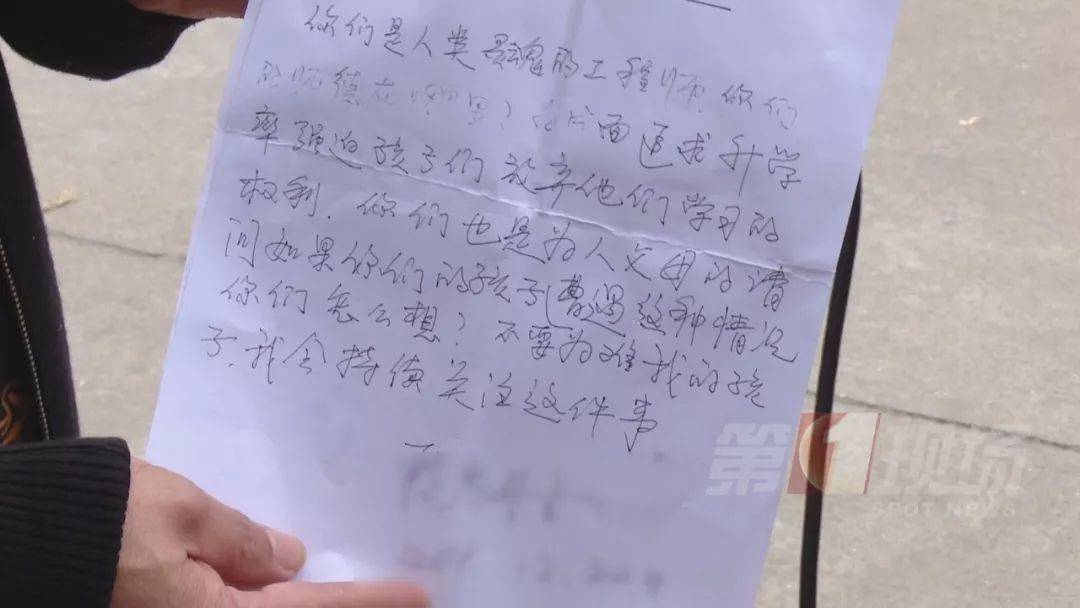 你们是人类灵魂的工程师.你们
的师德在哪里?片面追求升学
率强迫孩子们放弃他们学习的
权利.你们也是为人父母的请
问如果你们的孩子遭遇这种情况
你们怎么想?不要为难我的孩
子.我会持续关注这件事
第1现场
SPOT NEWS